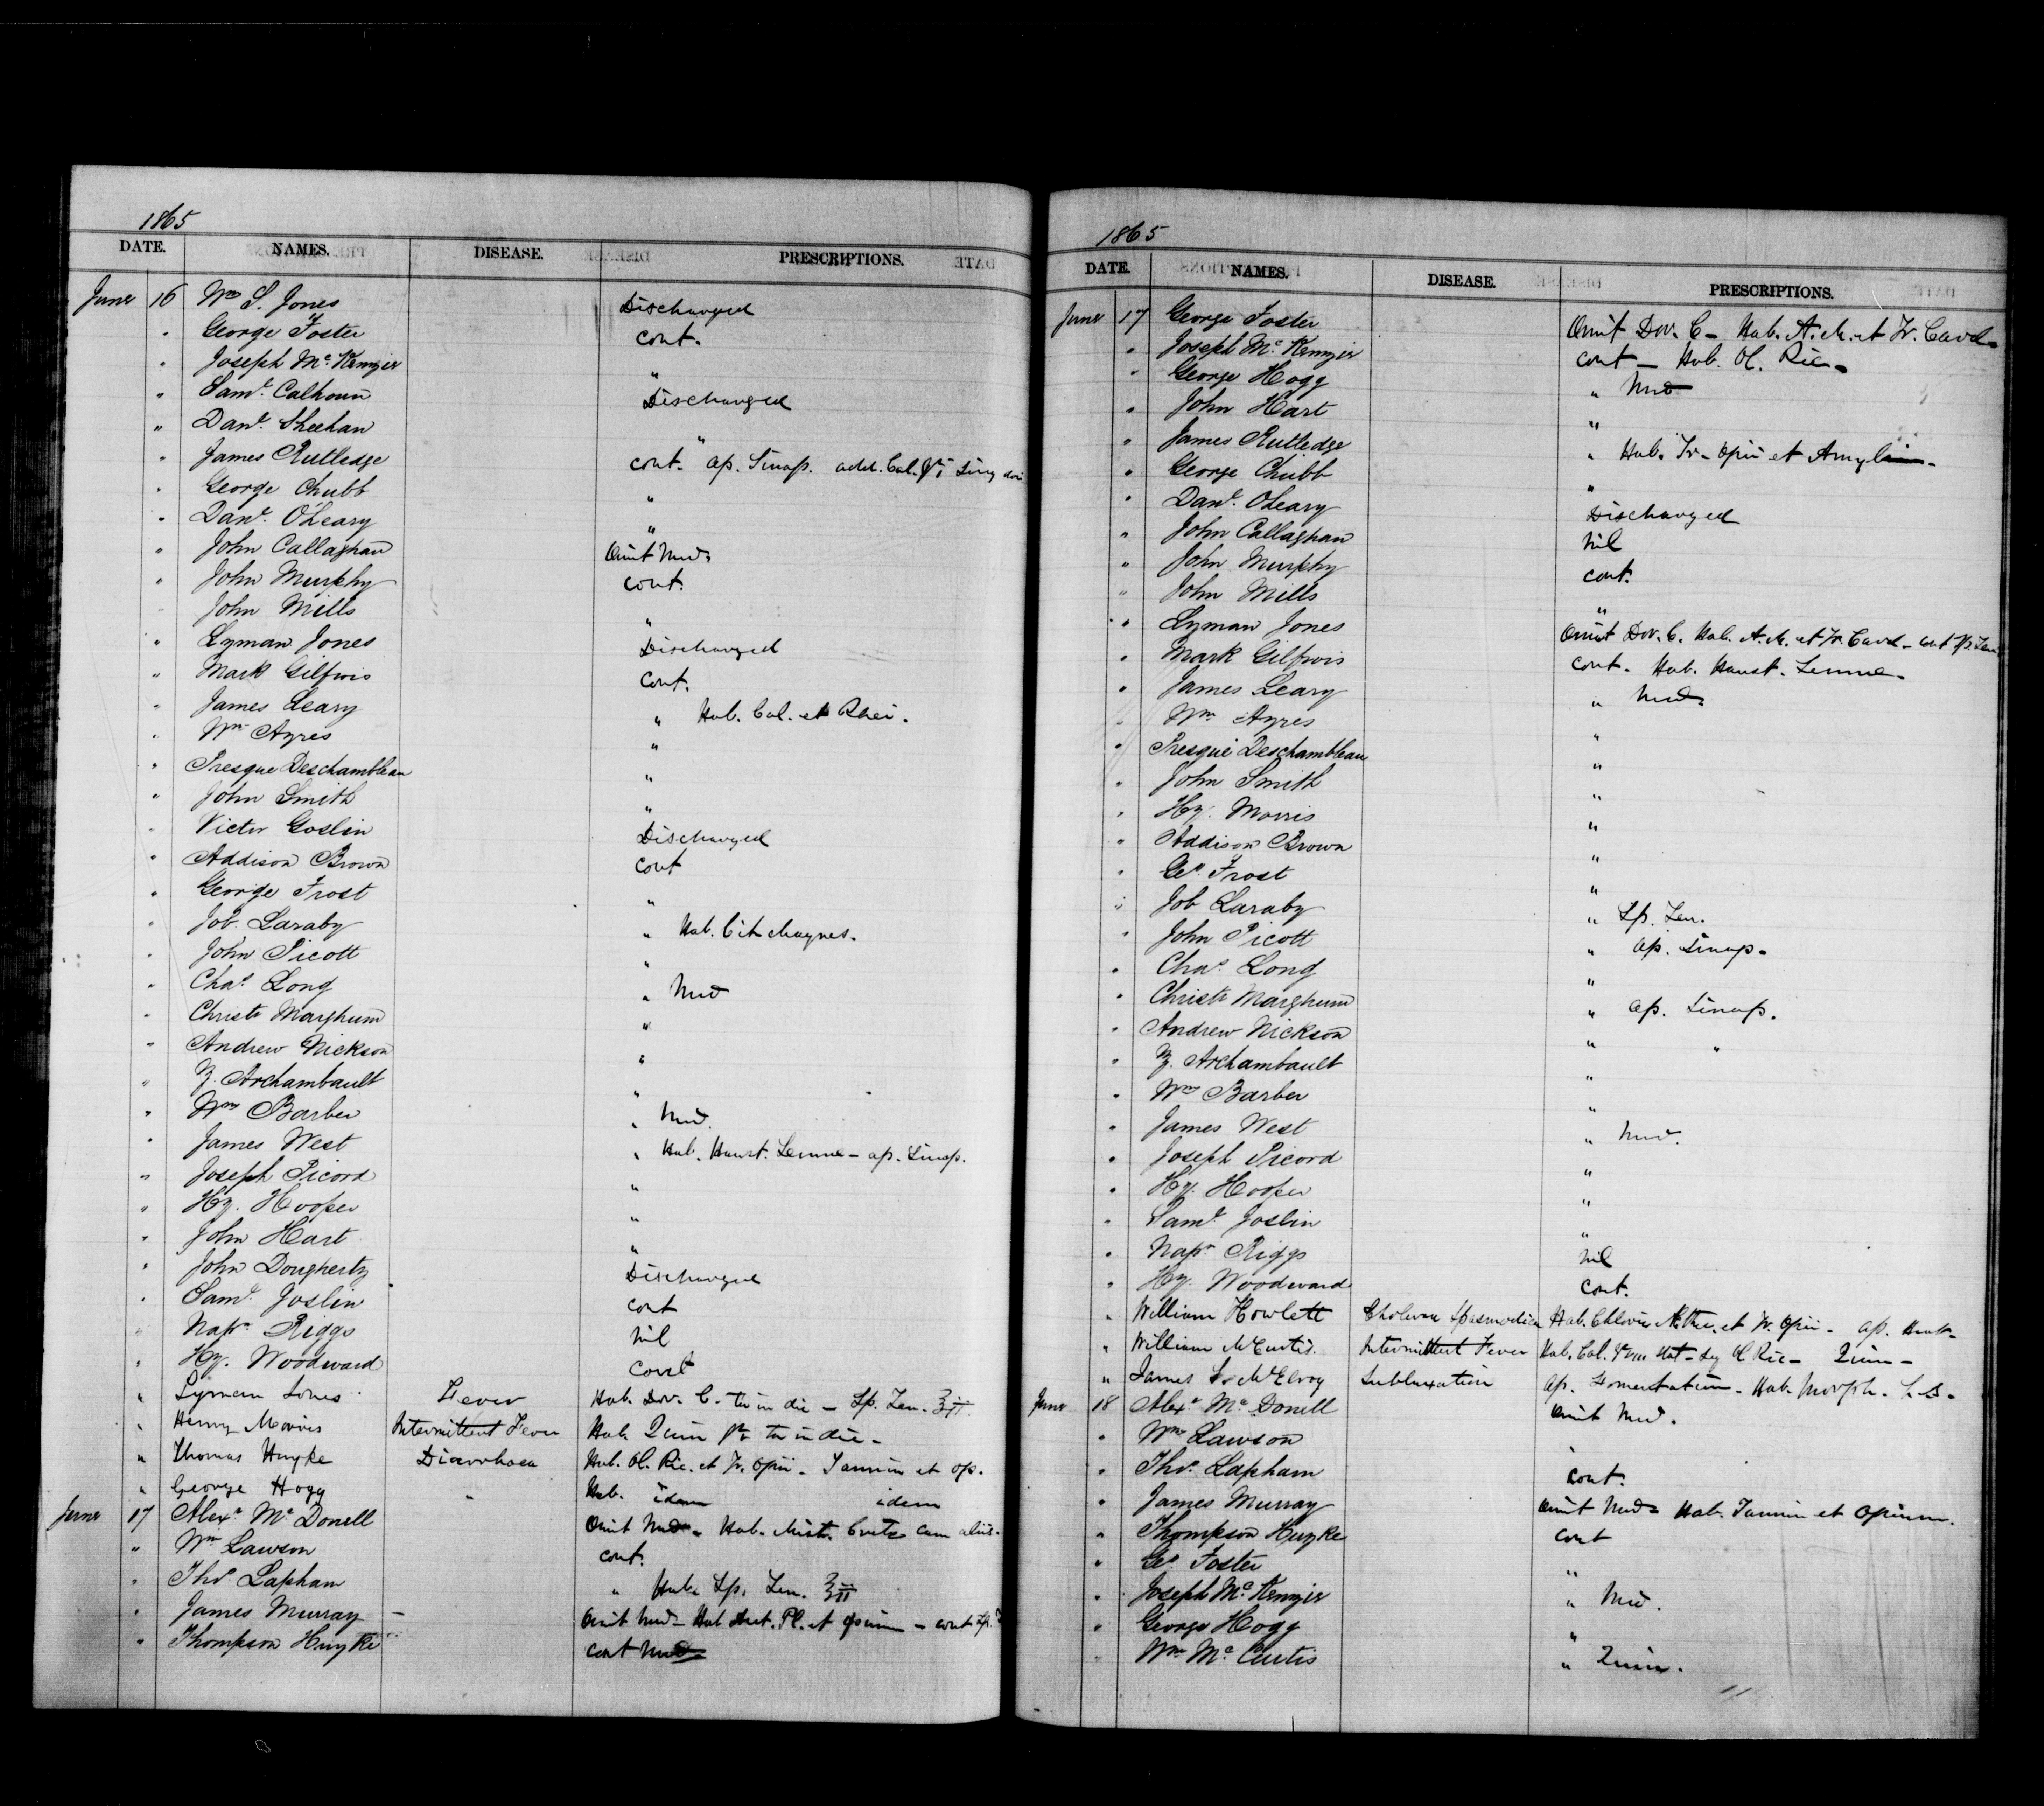 1865
DATE. NAMES. DISEASE. PRESCRIPTIONS.
June 16 Wm S. Jones Discharged
" George Foster cont.
" Joseph Mc Kenzier "
" Saml. Calhoun Discharged
" Danl. Sheehan "
" James Rutledge cont. Ap. Sinap. add. Cal.
" George Chubb "
" Danl. O'Leary "
" John Callaghan Omit Med.
" John Murphy cont.
" John Mills "
" Lyman Jones Discharged
" Mark Gilfrois cont.
" James Leary " Hab. Cal. et Rhei.
" Wm Ayres "
" Presque Deschambleau "
" John Smith "
" Victor Goslin Discharged
" Addison Brown cont
" George Frost "
" Job Laraby " Hab. Cit Magnes.
" John Picott "
" Chas. Long " Med
" Christr Marghum "
" Andrew Nickson "
" Z. Archambault "
" Wm Barber " Med.
" James West " Hab. Haust. Sennae - ap. Sinap.
" Joseph Picord "
" Hy. Hooper "
" John Hart "
" John Dougherty Discharged
" Saml. Joslin cont
" Napn Riggs nil
" Hy. Woodward cont
" Lyman Jones Fever Hab. Dov. C. ter in die - Sp. Fru. ʒii
" Henry Morris Intermittent Fever Hab. Quin ter in die -
" Thomas Huyke Diarrhoea Hab. Ol. Ric. et Tr. Opii - Tannin et op.
" George Hogg " Hab. idem idem
June 17 Alexr Mc Donell Omit Med - Hab. Mist. Cretae cum aliis.
" Wm Lawson cont.
" Thos. Lapham " Hab. Sp. Fru. ʒii
" James Murray - Omit Med - Hab. Pl. et opium - cont Sp.
" Thompson Huyke cont Med
1865
DATE. NAMES. DISEASE. PRESCRIPTIONS.
June 17 George Foster Omit Dov. C - Hab. A. M. et Tr. Card.
" Joseph Mc Kenzier cont - Hab. Ol. Ric.
" George Hogg " Med
" John Hart "
" James Rutledge " Hab. Tr. Opii et Amyli
" George Chubb "
" Danl. O'Leary Discharged
" John Callaghan nil
" John Murphy cont.
" John Mills "
" Lyman Jones Omit Dov. C. Hab. A. M. et Tr. Card - cont Sp.
" Mark Gilfrois cont. Hab. Haust. Sennae.
" James Leary " Med.
" Wm Ayres "
" Presque Deschambleau "
" John Smith "
" Hy. Morris "
" Addison Brown "
" Geo Frost "
" Job Laraby " Sp. Fru.
" John Picott " ap. Sinap.
" Chas. Long "
" Christr Marghum " ap. Sinap.
" Andrew Nickson " "
" Z. Archambault "
" Wm Barber "
" James West " Med.
" Joseph Picord "
" Hy. Hooper "
" Saml. Joslin "
" Napn Riggs nil
" Hy. Woodward cont.
" William Howlett Cholera Spasmodica Hab. Chloric Aether. et Tr. Opii - ap.
" William McCurtis Intermittent Fever Hab. Cal. Ol Ric - Quin -
" James McElroy Subluxation Ap. Fomentation - Hab. Morph.
June 18 Alexr Mc Donell Omit Med.
" Wm Lawson "
" Thos. Lapham cont.
" James Murray Omit Med - Hab. Tannin et Opium.
" Thompson Huyke cont
" Geo Foster "
" Joseph Mc Kenzier " Med.
" George Hogg "
" Wm Mc Curtis " Quin.